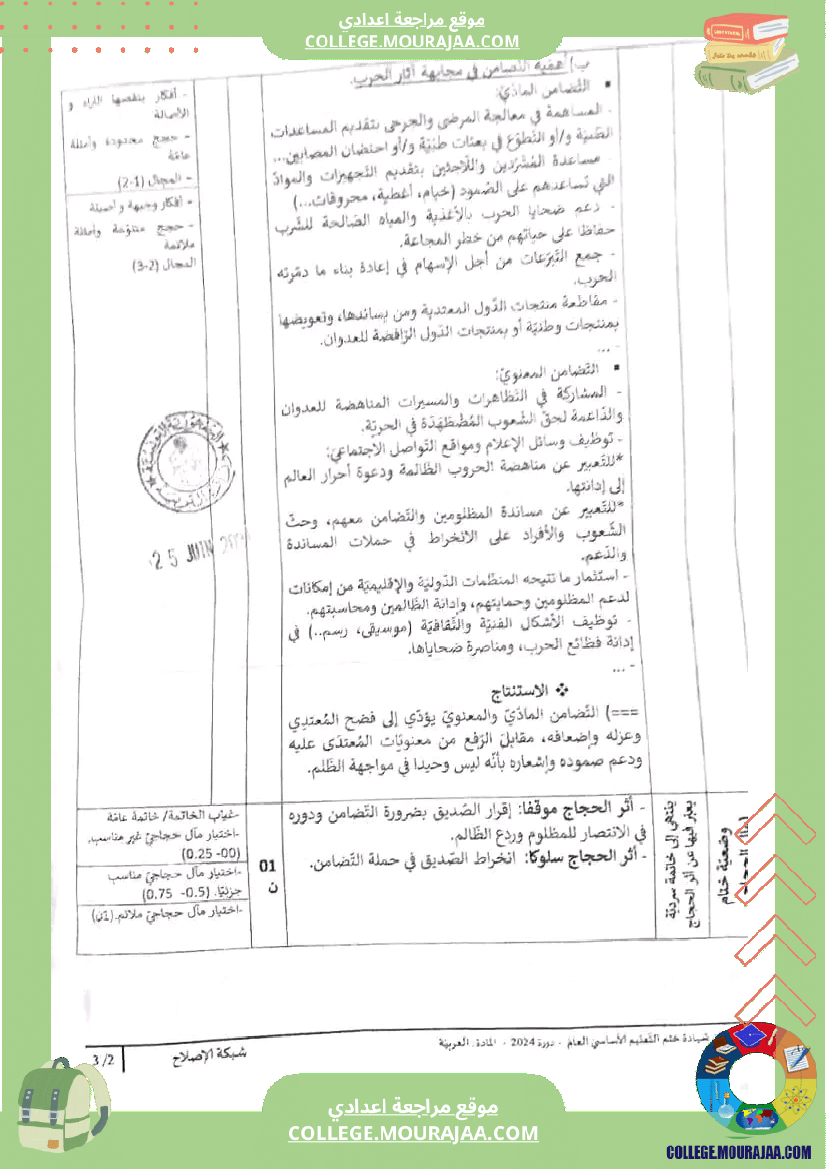 موقع مراجعة اعدادي
COLLEGE.MOURAJAA.COM
ب) أهمّية التّضامن في مجابهة آثار الحرب.
▪ التّضامن المادّيّ:
- المساهمة في معالجة المرضى والجرحى بتقديم المساعدات
الطّبّيّة و/أو التّطوّع في بعثات طبّيّة و/أو احتضان المصابين...
- مساعدة المُشرّدين واللّاجئين بتقديم التّجهيزات والموادّ
التي تساعدهم على الصّمود (خيام، أغطية، محروقات...)
- دعم ضحايا الحرب بالأغذية والمياه الصّالحة للشّرب
حفاظا على حياتهم من خطر المجاعة.
- جمع التّبرّعات من أجل الإسهام في إعادة بناء ما دمّرته
الحرب.
- مقاطعة منتجات الدّول المعتدية ومن يساندها، وتعويضها
بمنتجات وطنيّة أو بمنتجات الدّول الرّافضة للعدوان.
- ...
▪ التّضامن المعنويّ:
- المشاركة في التّظاهرات والمسيرات المناهضة للعدوان
والدّاعمة لحقّ الشّعوب المُضْطَهَدَة في الحرّيّة.
- توظيف وسائل الإعلام ومواقع التّواصل الاجتماعيّ:
*للتّعبير عن مناهضة الحروب الظّالمة ودعوة أحرار العالم
إلى إدانتها.
*للتّعبير عن مساندة المظلومين والتّضامن معهم، وحثّ
الشّعوب والأفراد على الانخراط في حملات المساندة
والدّعم.
- استثمار ما تتيحه المنظّمات الدّوليّة والإقليميّة من إمكانات
لدعم المظلومين وحمايتهم، وإدانة الظّالمين ومحاسبتهم.
- توظيف الأشكال الفنّيّة والثّقافيّة (موسيقى، رسم..) في
إدانة فظائع الحرب، ومناصرة ضحاياها.
- ...
❖ الاستنتاج
===) التّضامن المادّيّ والمعنويّ يؤدّي إلى فضح المُعتدِي
وعزله وإضعافه، مقابلَ الرّفع من معنويّات المُعتدَى عليه
ودعم صموده وإشعاره بأنّه ليس وحيدا في مواجهة الظّلم.
- أفكار ينقصها الثراء و
الأصالة
- حجج محدودة وأمثلة
عامّة
- المجال (1-2)
- أفكار وجيهة و أصيلة
- حجج متنوّعة وأمثلة
ملائمة
المجال (2-3)
25 JUIN
وضعيّة ختام
ينتهي إلى خاتمة سرديّة
يعبّر فيها عن أثر الحجاج
- أثر الحجاج موقفا: إقرار الصّديق بضرورة التّضامن ودوره
في الانتصار للمظلوم وردع الظّالم.
- أثر الحجاج سلوكا: انخراط الصّديق في حملة التّضامن.
01
ن
-غياب الخاتمة/ خاتمة عامّة
-اختيار مآل حجاجيّ غير مناسب.
(00- 0.25)
-اختيار مآل حجاجيّ مناسب
جزئيّا. (0.5- 0.75)
-اختيار مآل حجاجيّ ملائم.(1ن)
شهادة ختم التّعليم الأساسي العامّ - دورة 2024 - المادّة: العربيّة
شبكة الإصلاح
3/2
موقع مراجعة اعدادي
COLLEGE.MOURAJAA.COM
COLLEGE.MOURAJAA.COM